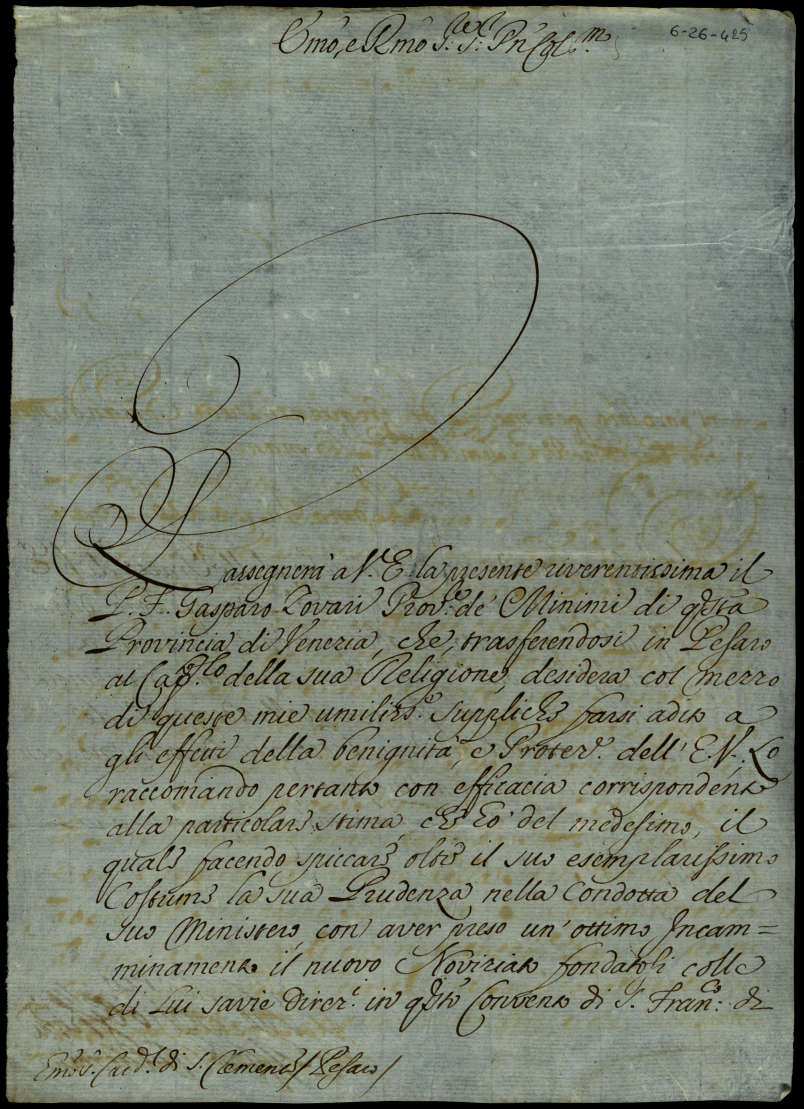 Emo, e Rmo Sig.r Sig.r Pn Col.mo
6-26-425
Rassegnerà a V.E. la presente riverentissima il
P. F. Gasparo Tovari Prov.le de' Minimi di q.sta
Provincia di Venezia, che, trasferendosi in Pesaro
al Cap.lo della sua Religione, desidera col mezzo
di queste mie umiliss.e suppliche farsi adito a
gli effetti della benignità, e Protez.e dell' E.V. Lo
raccomando pertanto con efficacia corrispondente
alla particolare stima, che ò del medesimo, il
quale facendo spiccare oltre il suo esemplarissimo
Costume la sua Prudenza nella Condotta del
suo Ministero, con aver preso un' ottimo Incam=
minamento il nuovo Noviziato fondatoli colle
di Lui savie direz.i in q.sto Convento di S. Fran.co di
Emo S. Card.l di S. Clemente / Pesaro /